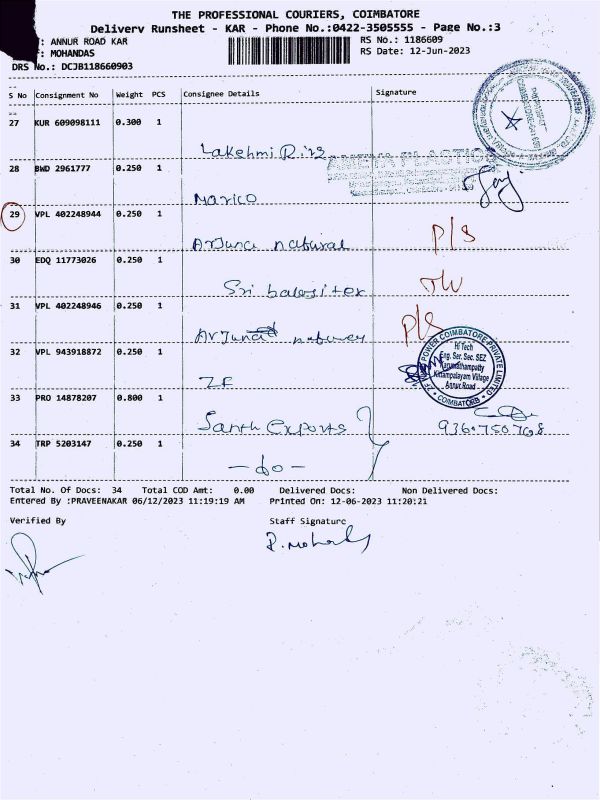 THE PROFESSIONAL COURIERS, COIMBATORE
Delivery Runsheet - KAR - Phone No.:0422-3505555 - Page No.:3
: ANNUR ROAD KAR
RS No.: 1186609
: MOHANDAS
RS Date: 12-Jun-2023
DRS No.: DCJB118660903
S No Consignment No Weight PCS Consignee Details Signature
27 KUR 609098111 0.300 1
Lakshmi Ring
28 BWD 2961777 0.250 1
Marico
29 VPL 402248944 0.250 1
Arjuna natural P/S
30 EDQ 11773026 0.250 1
Sri balaji tex
31 VPL 402248946 0.250 1
Arjuna P/S
32 VPL 943918872 0.250 1
ZF
ZF POWER COIMBATORE PRIVATE LIMITED
Hi Tech
Eng. Ser. Sec. SEZ
Karumathampatty
Kittampalayam Village
Annur Road
* COIMBATORE *
33 PRO 14878207 0.800 1
Santh Exports
34 TRP 5203147 0.250 1
- do -
Total No. Of Docs: 34 Total COD Amt: 0.00 Delivered Docs: Non Delivered Docs:
Entered By :PRAVEENAKAR 06/12/2023 11:19:19 AM Printed On: 12-06-2023 11:20:21
Verified By Staff Signature
P. Mohandas